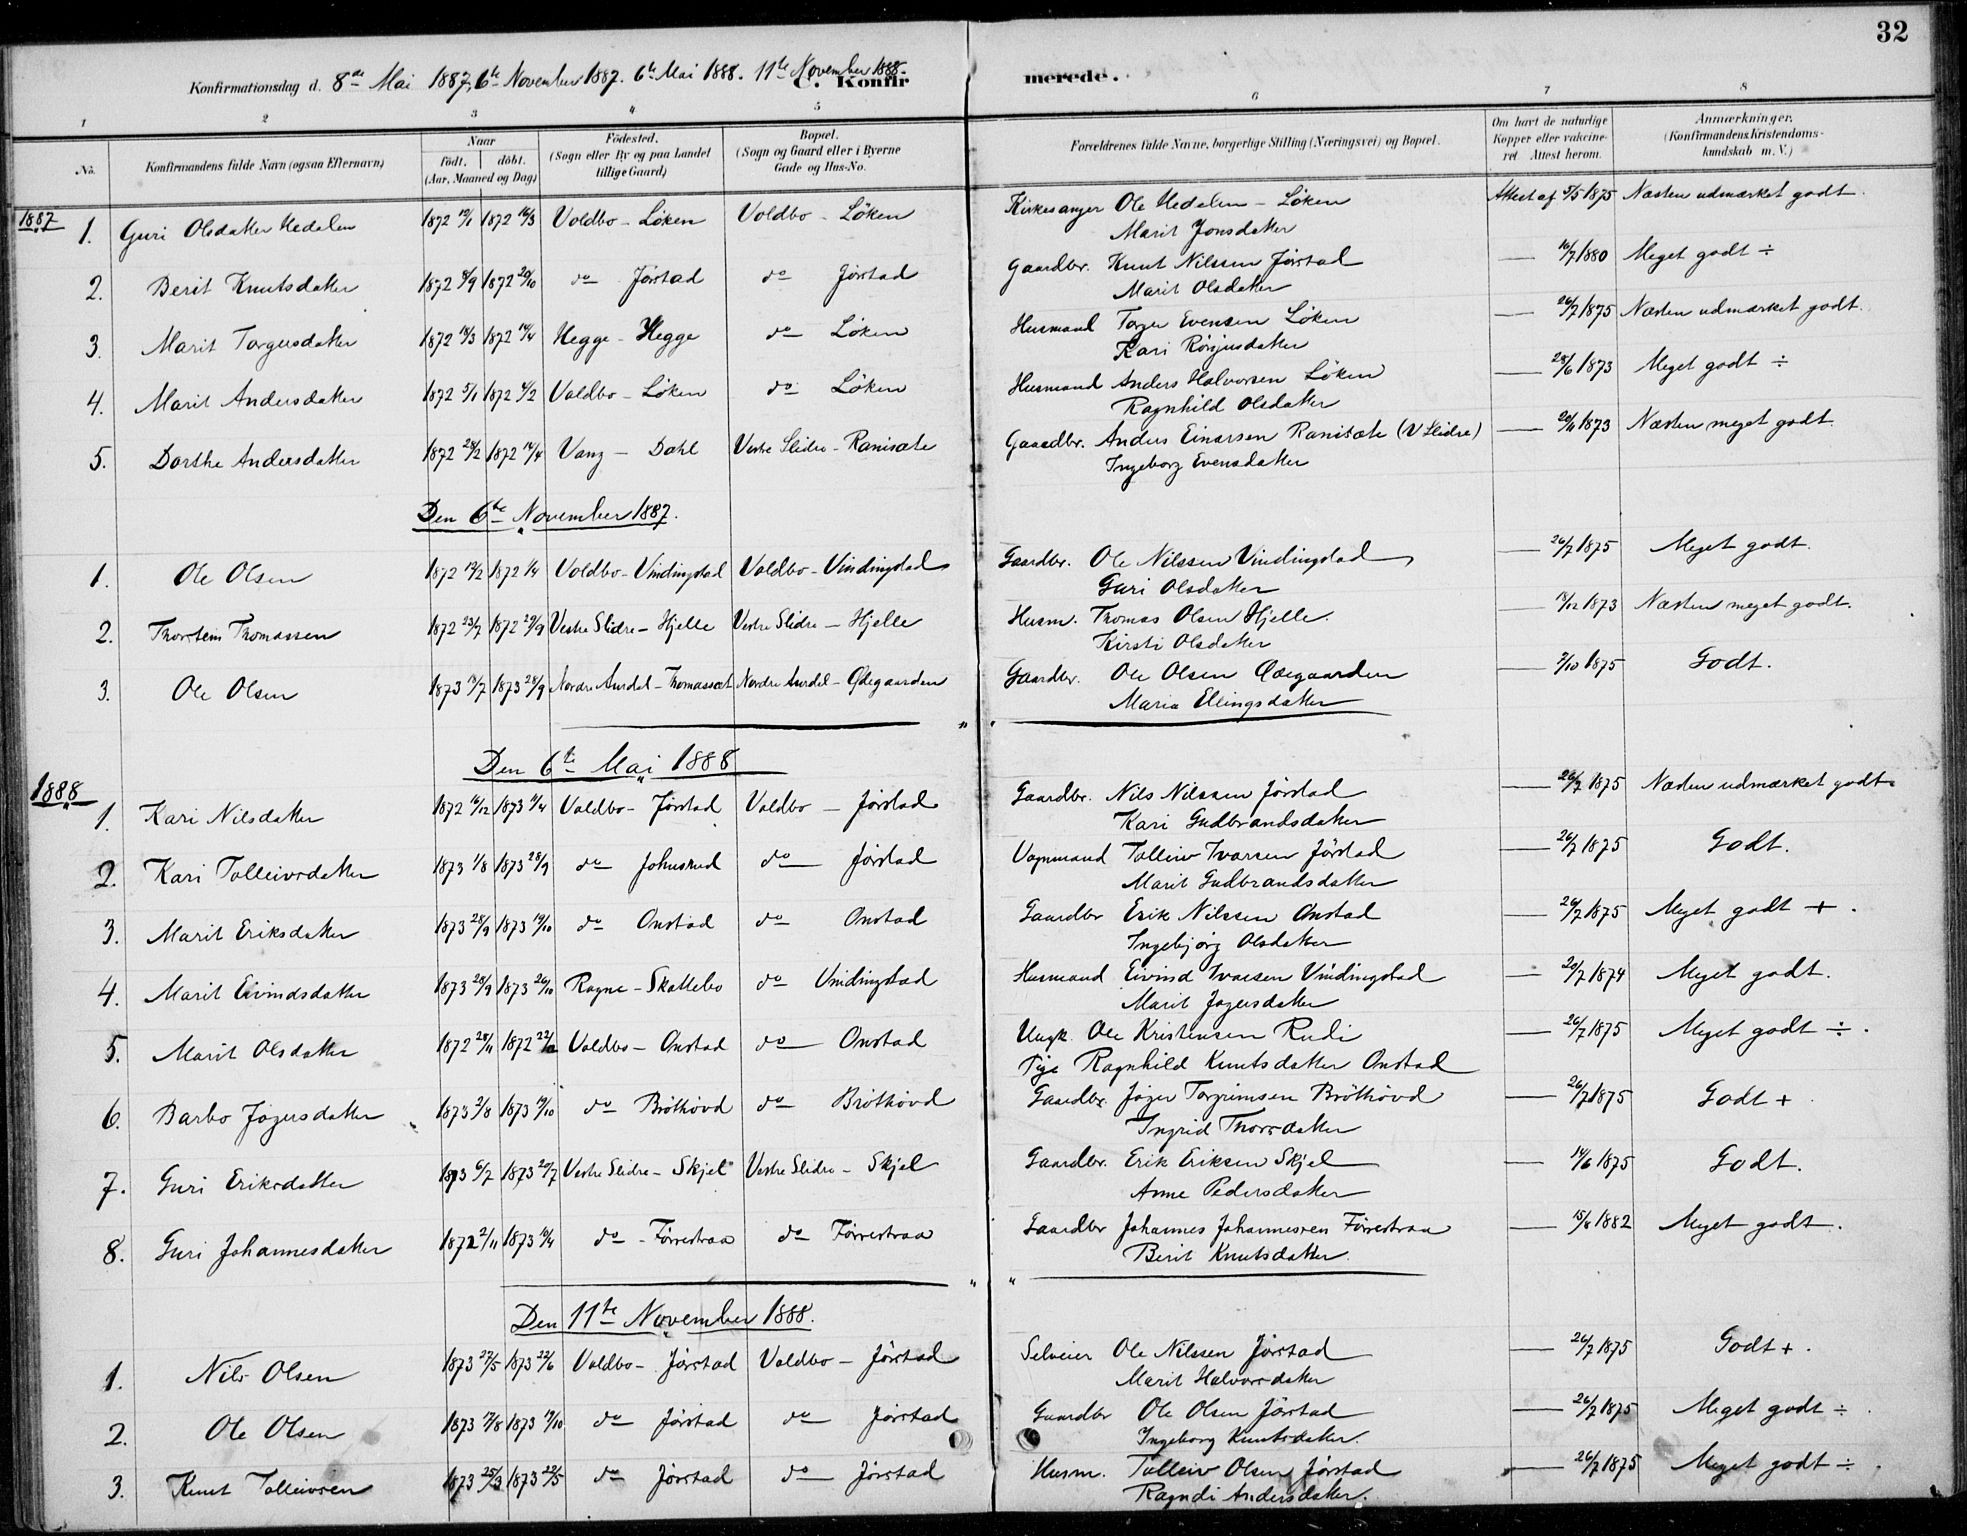 32
Konfirmationsdag d. 8de Mai 1887, 6te November 1887. 6te Mai 1888. 11te November 1888.
C. Konfirmerede.
1 2 3 4 5 6 7 8
No. Konfirmandens fulde Navn (ogsaa Efternavn) Naar födt. döbt. (Aar, Maaned og Dag) Födested. (Sogn eller By og paa Landet tillige Gaard) Bopæl. (Sogn og Gaard eller i Byerne Gade og Hus-No. Forældrenes fulde Navne, borgerlige Stilling (Næringsvei) og Bopæl. Om havt de naturlige Kopper eller vakcineret. Attest herom. Anmærkninger. (Konfirmandens Kristendomskundskab m. V.)
1887
1. Guri Olsdatter Hedalen 1872 1872 16/3 Voldbo - Löken Voldbo - Löken Kirkesanger Ole Hedalen - Löken Attest af 9/5 1875 Næsten udmærket godt.
Marit Jonsdatter
2. Berit Knutsdatter 1872 8/9 1872 20/10 do Jörstad do Jörstad Gaardbr. Knut Nilssen Jörstad — 16/7 1880 Meget godt ÷
Marit Olsdatter
3. Marit Torgersdatter 1872 18/3 1872 14/4 Hegge - Hegge do Löken Husmand Torger Evensen Löken — 26/7 1875 Næsten udmærket godt.
Kari
4. Marit Andersdatter 1872 5/1 1872 4/2 Voldbo - Löken do Löken Husmand Anders Halvorsen Löken — 28/6 1873 Meget godt ÷
Ragnhild Olsdatter
5. Dorthe Andersdatter 1872 28/2 1872 14/4 Vang - Dahl Vestre Slidre - Ranisæte Gaardbr. Anders Einarsen Ranisæte (V Slidre) — 20/11 1873 Næsten meget godt.
Ingeborg Evensdatter
Den 6te November 1887.
1. Ole Olsen 1872 19/2 1872 1/4 Voldbo - Vindingstad Voldbo - Vindingstad Gaardbr. Ole Nilssen Vindingstad — 26/7 1875 Meget godt.
Guri Olsdatter
2. Thorstein Thomassen 1872 23/7 1872 29/9 Vestre Slidre - Hjelle Vestre Slidre - Hjelle Husm. Thomas Olsen Hjelle. — 1873 Næsten meget godt.
Kirsti Olsdatter
3. Ole Olsen 1873 1873 28/9 Nordre Aurdal - Thomasset Nordre Aurdal - Ödegaarden Gaardbr. Ole Olsen Ödegaarden — 1875 Godt.
Maria Ellingsdatter
Den 6te Mai 1888
1888
1. Kari Nilsdatter 1872 16/12 1873 Voldbo - Jörstad Voldbo - Jörstad Gaardbr. Nils Nilssen Jörstad — 26/7 1875 Næsten udmærket godt.
Kari Gudbrandsdatter
2. Kari Tolleivsdatter 1873 1/8 1873 28/9 do do Jörstad Vognmand Tolleiv Ivarsen Jörstad — 26/7 1875 Godt.
Marit Gudbrandsdatter
3. Marit Eriksdatter 1873 28/9 1873 19/10 do Onstad do Onstad Gaardbr Erik Nilssen Onstad — 26/7 1875 Meget godt + .
Ingebjörg Olsdatter
4. Marit Eivindsdatter 1873 20/9 1873 26/10 Rogne - Skattebo do Vindingstad Husmand Eivind Ivarsen Vindingstad — 20/7 1874 Meget godt.
Marit Jögersdatter
5. Marit Olsdatter 1872 28/11 1872 Voldbo - Onstad do Onstad Ungk. Ole Kristensen Rudi — 26/7 1875 Meget godt ÷.
Pige Ragnhild Knutsdatter Onstad
6. Barbo Jögersdatter 1873 2/8 1873 19/10 do Bröthövd do Bröthövd Gaardbr. Jöger Torgrimsen Bröthövd — 26/7 1875 Godt +
Ingrid Thorsdatter
7. Guri Eriksdatter 1873 6/7 1873 20/7 Vestre Slidre - Skjel Vestre Slidre - Skjel Gaardbr. Erik Eriksen Skjel — 14/6 1875 Godt.
Anne Pedersdatter
8. Guri Johannesdatter 1872 2/11 1873 do - Förrestraa do Förrestraa Gaardbr Johannes Johannessen Förrestraa — 1882 Meget godt.
Berit Knutsdatter.
Den 11te November 1888.
1. Nils Olsen 1873 27/5 1873 22/6 Voldbo - Jörstad Voldbo - Jörstad Selveier Ole Nilssen Jörstad — 26/7 1875 Godt + .
Marit Halvorsdatter
2. Ole Olsen 1873 17/8 1873 19/10 do Jörstad do Jörstad Gaardbr Ole Olsen Jörstad — 26/7 1875 Meget godt ÷ .
Ingeborg Knutsdatter.
3. Knut Tolleivsen 1873 25/3 1873 22/5 do Jörstad do Jörstad Husm. Tolleiv Olsen Jörstad — 26/7 1875 Meget godt ÷ .
Ragndi Andersdatter.